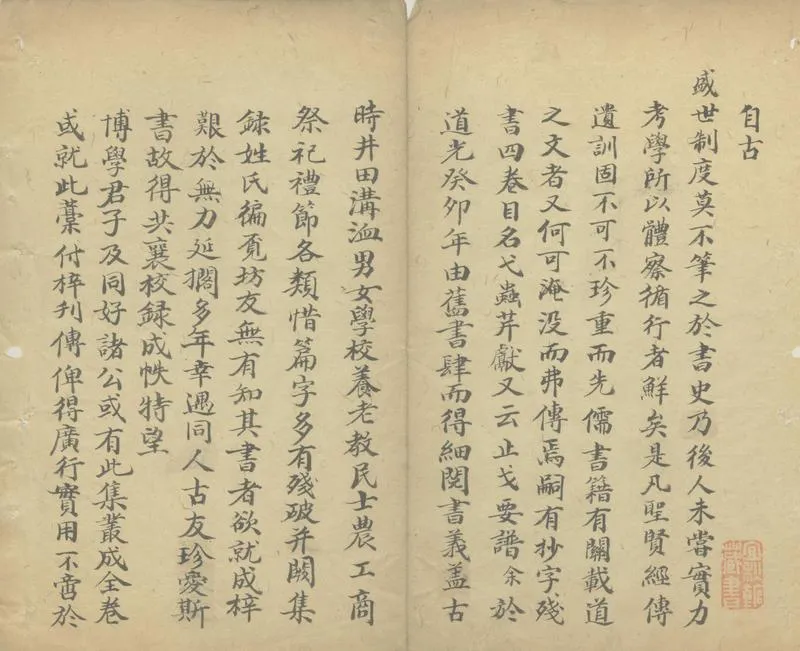 自古
盛世制度莫不筆之於書史乃後人未嘗實力
考學所以體察循行者鮮矣是凡聖賢經傳
遺訓固不可不珍重而先儒書籍有關載道
之文者又何可淹没而弗傳焉嗣有抄字殘
書四卷目名弋蟲芹獻又云止戈要譜余於
道光癸卯年由舊書肆而得細閱書義盖古
時井田溝洫男女學校養老教民士農工商
祭祀禮節各類惜篇字多有殘破并闕集
録姓氏徧覓坊友無有知其書者欲就成梓
艱於無力延擱多年幸遇同人古友珍愛斯
書故得共襄校録成帙特望
博學君子及同好諸公或有此集叢成全卷
或就此藁付梓刋傳俾得廣行實用不啻於